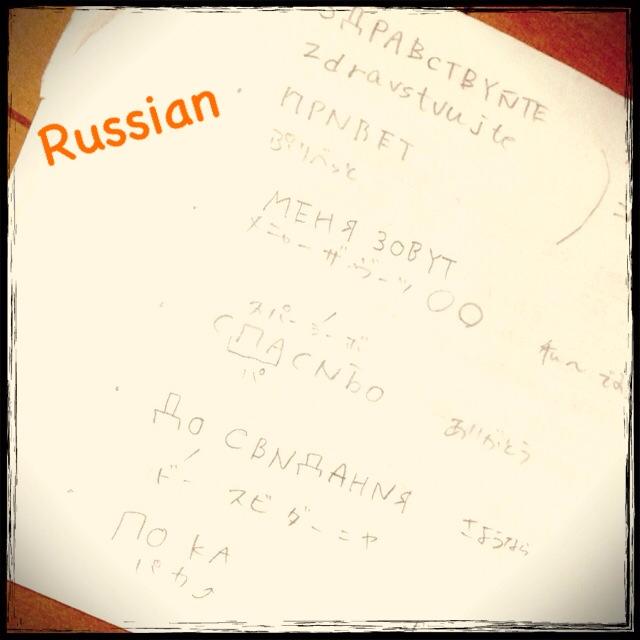 Russian
ЗДРАВСТВУЙТЕ
zdravstvujte
ПРИВЕТ
ぷりべっと
МЕНЯ ЗОВУТ
メニャーザヴーツ ○○
スパーシーボ
СПАСИБО
パ
ありがとう
ДО СВИДАНИЯ
ドー スビダーニャ
さようなら
ПОКА
パカ